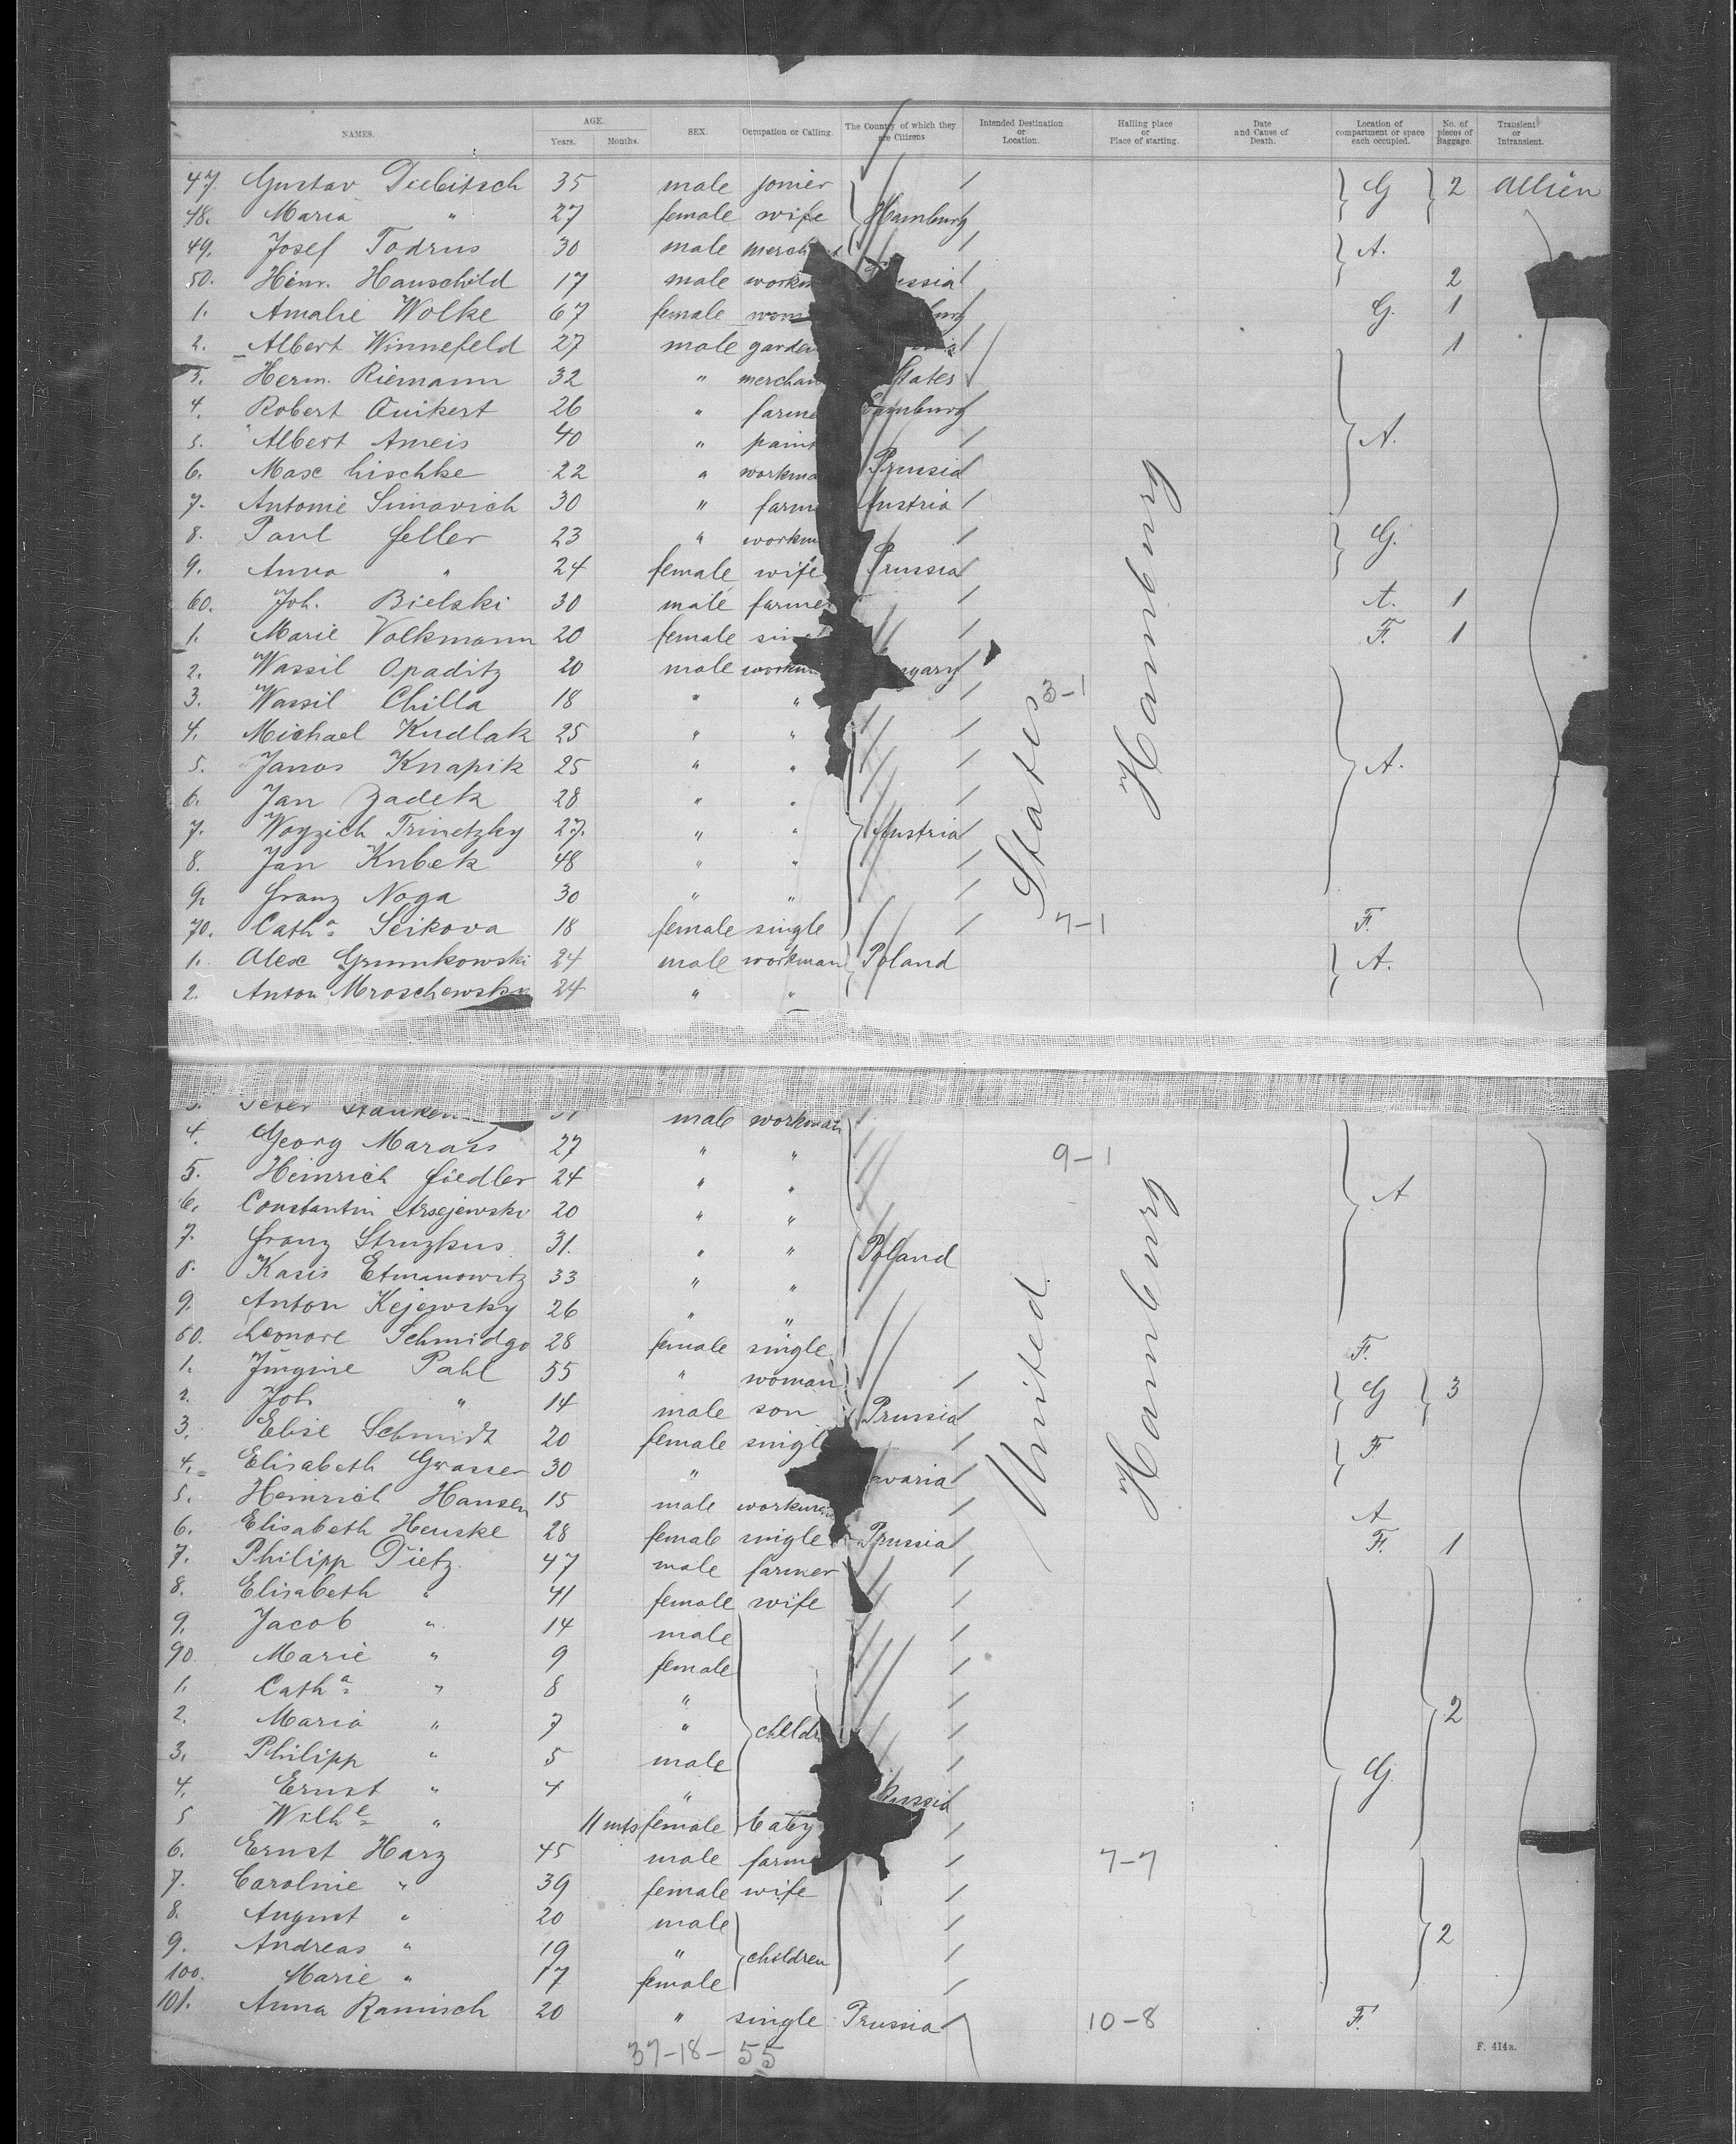 NAMES. AGE. Years. Months. SEX. Occupation or Calling. The Country of which they are Citizens Intended Destination or Location. Hailing place or Place of starting. Date and Cause of Death. Location of compartment or space each occupied. No. of pieces of Baggage. Transient or Intransient.
47. Gustav Diebitsch 35 male jonier G 2
48. Maria " 27 female wife Hamburg
49. Josef Todrus 30 male A.
50. Heinr. Hauschild 17 male 2
1. Amalie Wolke 67 female G. 1
2. Albert Winnefeld 27 male 1
3. Herm. Riemann 32 " States
4. Robert Quikert 26 " Hamburg
5. Albert Ameis 40 " A.
6. Max Lischke 22 " Prussia
7. Antonie Simovich 30 " Austria
8. Paul Feller 23 " G.
9. Anna " 24 female wife Prussia
60. Joh. Bielski 30 male farmer A. 1
1. Marie Volkmann 20 female F. 1
2. Wassil Opaditz 20 male
3. Wassil Chilla 18 " " 3-1
4. Michael Kudlak 25 " "
5. Janos Knapik 25 " " A.
6. Jan Zadek 28 " "
7. Woyzich Trinetzky 27. " " Austria
8. Jan Kubek 48 " "
9. Franz Noga 30 " "
70. Catha. Seikova 18 female single 7-1 F.
1. Alex Grumkowski 24 male workman Poland A.
2. Anton Mroschewsky 24 " "
States
Hamburg
male workman
4. Georg 27 " " 9-1
5. Heinrich Fiedler 24 " "
6. Constantin 20 " " A
7. Franz Struzkus 31. " "
8. Kasis Etmanowitz 33 " " Poland
9. Anton Kejewsky 26 " "
80. Leonore 28 female single F.
1. Pahl 55 " woman G 3
2. Joh. " 14 male son Prussia
3. Elise Schmidt 20 female F
4. Elisabeth Grasser 30 "
5. Heinrich Hansen 15 male workman A
6. Elisabeth Henske 28 female single Prussia F. 1
7. Philipp Dietz 47 male farmer
8. Elisabeth " 41 female wife
9. Jacob " 14 male
90. Marie " 9 female
1. Catha. " 8 "
2. Maria " 7 " 2
3. Philipp " 5 male
4. Ernst " 4 " Russia G.
5 Wilhe. " 11 mts female baby
6. Ernst Harz 45 male 7-7
7. Caroline " 39 female wife
8. August " 20 male 2
9. Andreas " 19 " children
100. Marie " 17 female
101. Anna Ramisch 20 " single Prussia 10-8 F.
United
Hamburg
37-18-55
F. 414a.